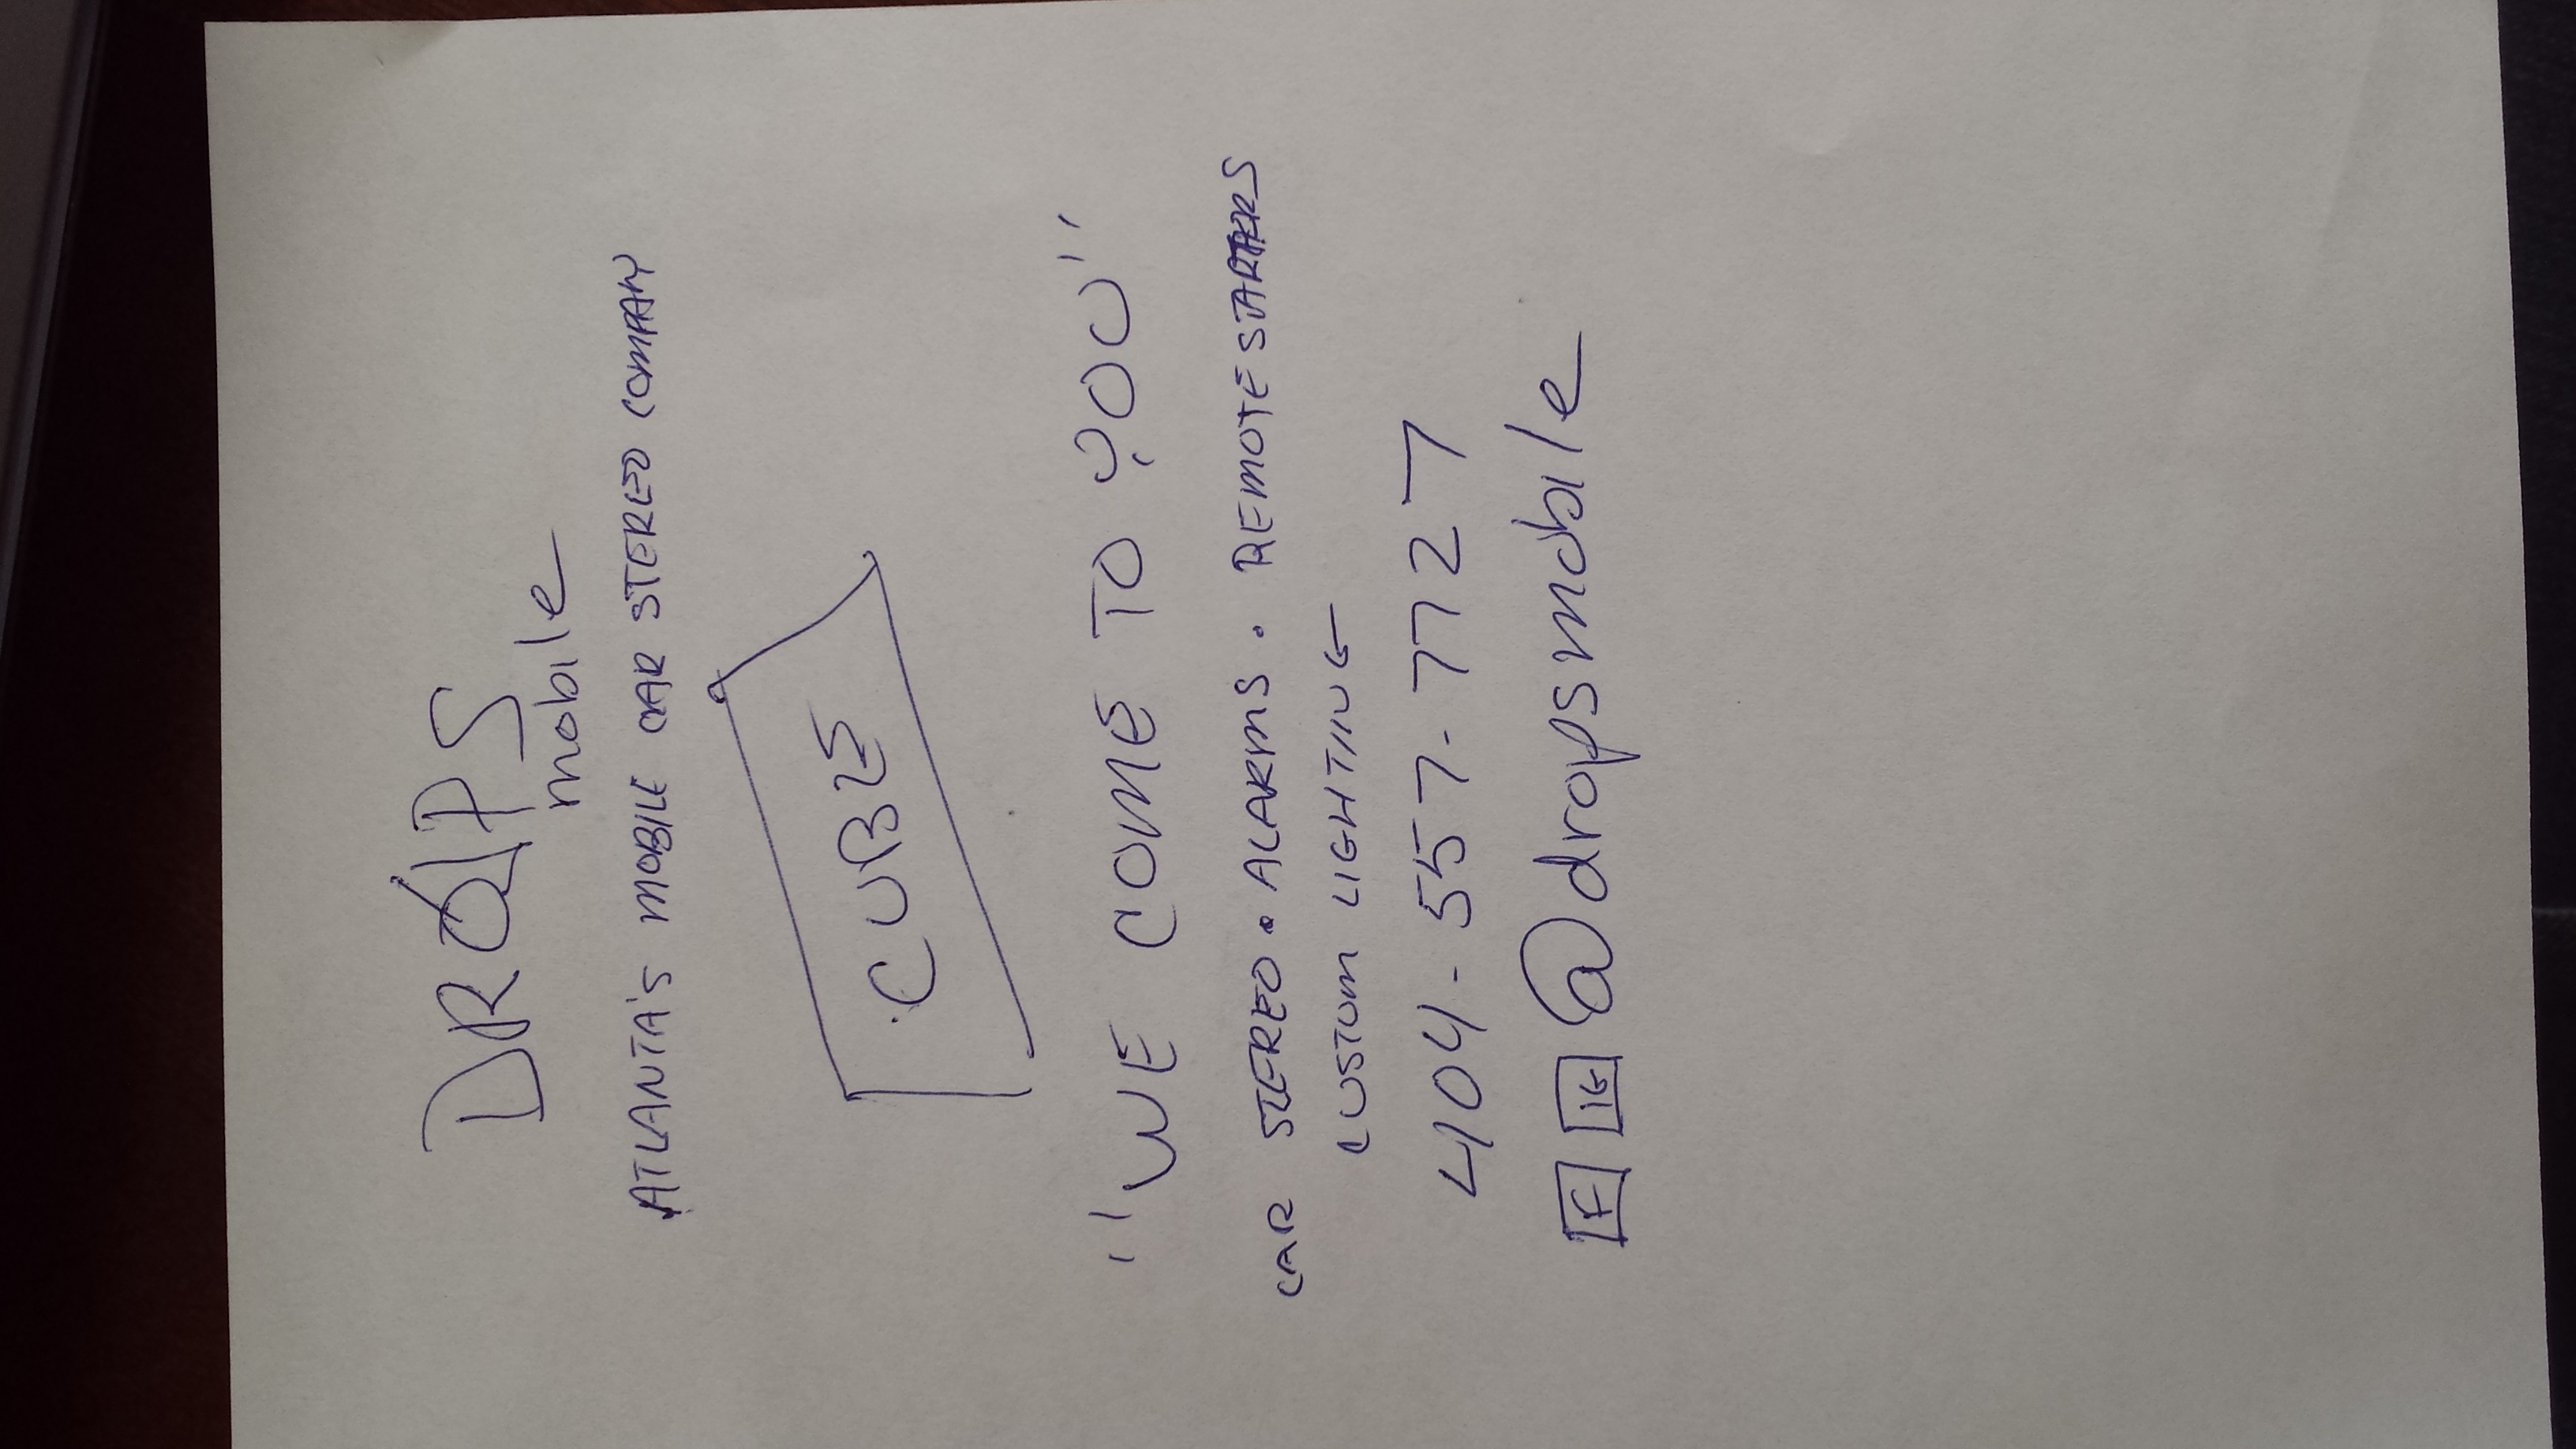 DROPS
mobile
ATLANTA'S MOBILE CAR STEREO COMPANY
CUBE
"WE COME TO YOU"
CAR STEREO • ALARMS • REMOTE STARTERS
CUSTOM LIGHTING
404-557-7727
F IG @dropsmobile